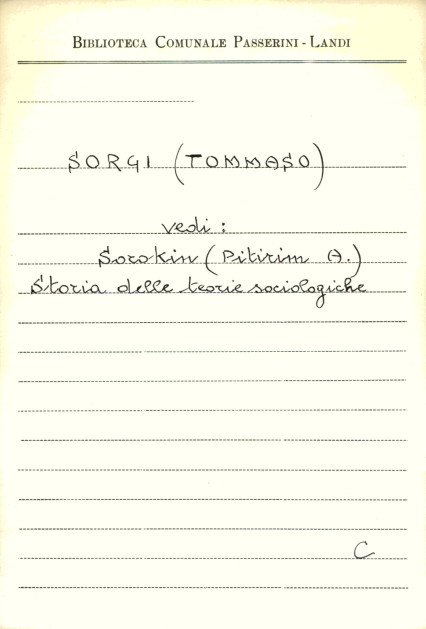 BIBLIOTECA COMUNALE PASSERINI - LANDI
SORGI (TOMMASO)
vedi :
Sorokin (Pitirim A.)
Storia delle teorie sociologiche
C